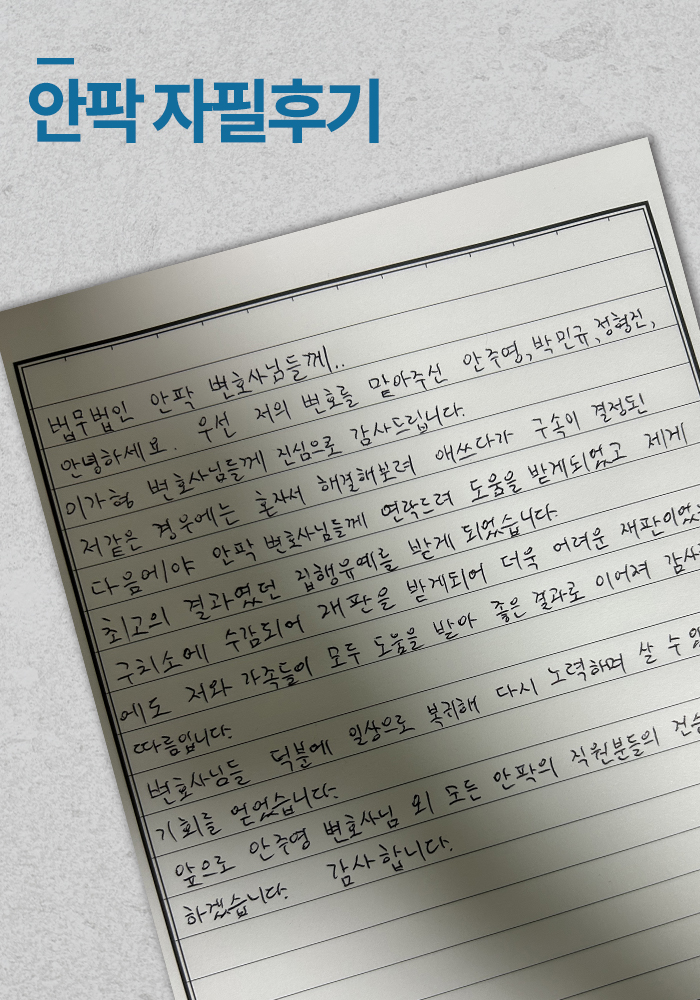 안팍 자필후기
법무법인 안팍 변호사님들께..
안녕하세요. 우선 저의 변호를 맡아주신 안주영, 박민규, 정형진,
이가형 변호사님들께 진심으로 감사드립니다.
저같은 경우에는 혼자서 해결해보려 애쓰다가 구속이 결정된
다음에야 안팍 변호사님들께 연락드려 도움을 받게되었고 제게
최고의 결과였던 집행유예를 받게 되었습니다.
구치소에 수감되어 재판을 받게되어 더욱 어려운 재판이었
에도 저와 가족들이 모두 도움을 받아 좋은 결과로 이어져 감사
따름입니다.
변호사님들 덕분에 일상으로 복귀해 다시 노력하며 살 수 있
기회를 얻었습니다.
앞으로 안주영 변호사님 외 모든 안팍의 직원분들의 건승
하겠습니다. 감사합니다.